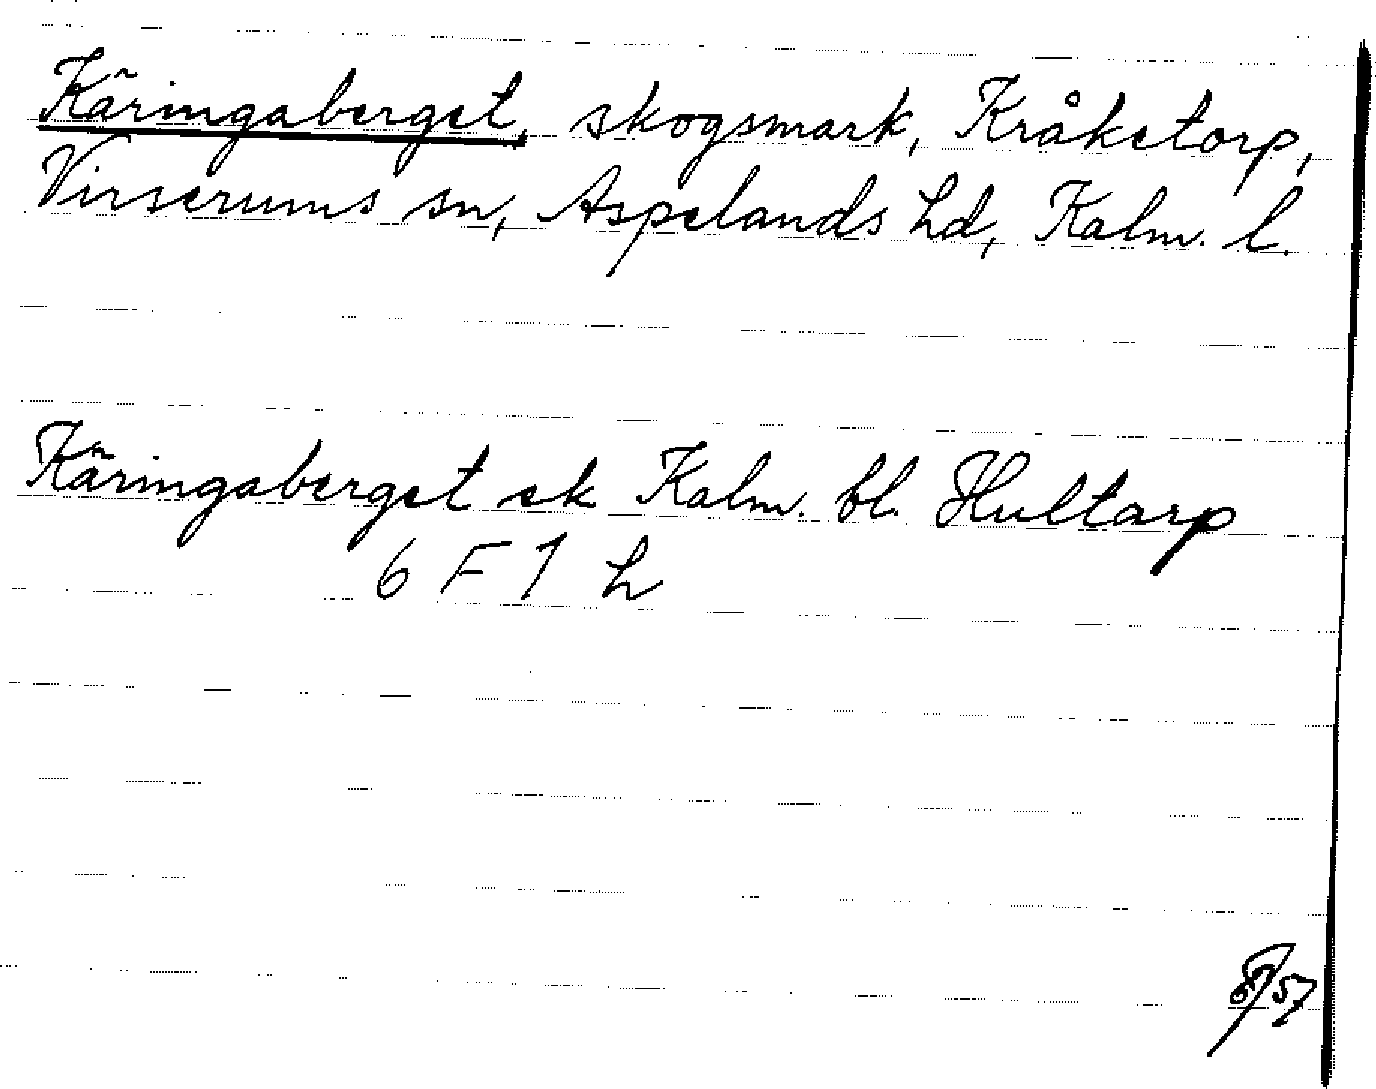 Käringaberget, skogsmark, Kråketorp,
Virserums sn, Aspelands hd, Kalm. l.
Käringaberget ek Kalm. bl. Hultarp
6 F 1 h